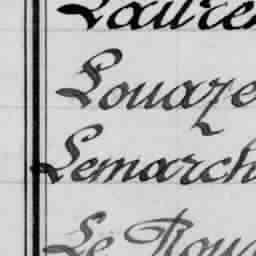 Lauren
Louaze
Lemarch
Le Roux